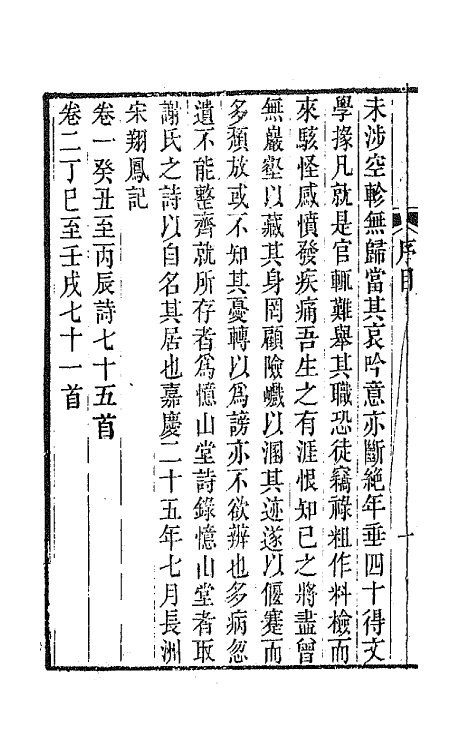 序目
一
未涉空軫無歸當其哀吟意亦斷絶年垂四十得文
學掾凡就是官輒難舉其職恐徒竊祿粗作料檢而
來駭怪感憤發疾痛吾生之有涯恨知已之將盡曾
無巖壑以藏其身罔顧險巇以溷其迹遂以偃蹇而
多頹放或不知其憂轉以爲謗亦不欲辨也多病忽
遺不能整齊就所存者爲憶山堂詩錄憶山堂者取
謝氏之詩以自名其居也嘉慶二十五年七月長洲
宋翔鳳記
卷一癸丑至丙辰詩七十五首
卷二丁巳至壬戌七十一首